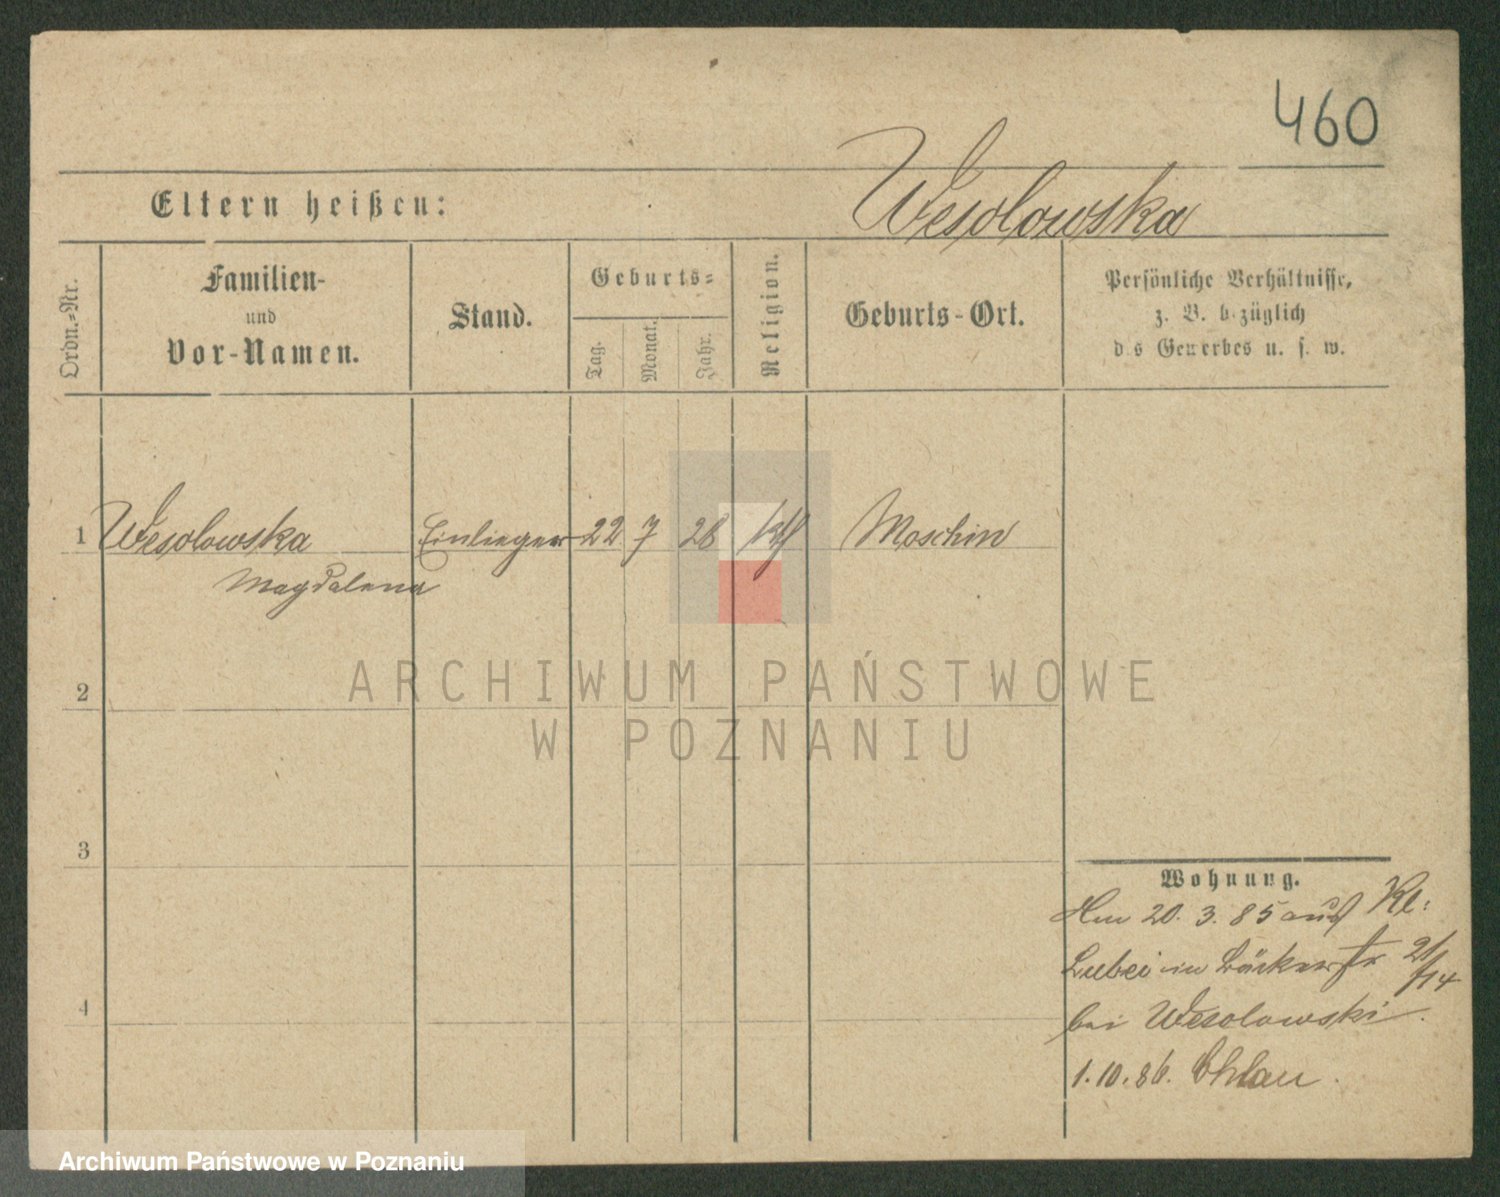 460
Wesolowska
Eltern heißen:
Ordn.-Nr.
Familien-
und
Vor-Namen.
Stand.
Geburts-
Tag.
Monat.
Jahr.
Religion.
Geburts-Ort.
Persönliche Verhältnisse,
z. B. bezüglich
des Gewerbes u. s. w.
1 Wesolowska Einlieger 22 7 28 kth Moschin
Magdalena
2
3
4
ARCHIWUM PAŃSTWOWE
W POZNANIU
Wohnung.
20. 3. 85 aus Kl:
Lubei in Bäckerstr 21/14
bei Wesolowski.
1.10.86. Ohlau.
Archiwum Państwowe w Poznaniu